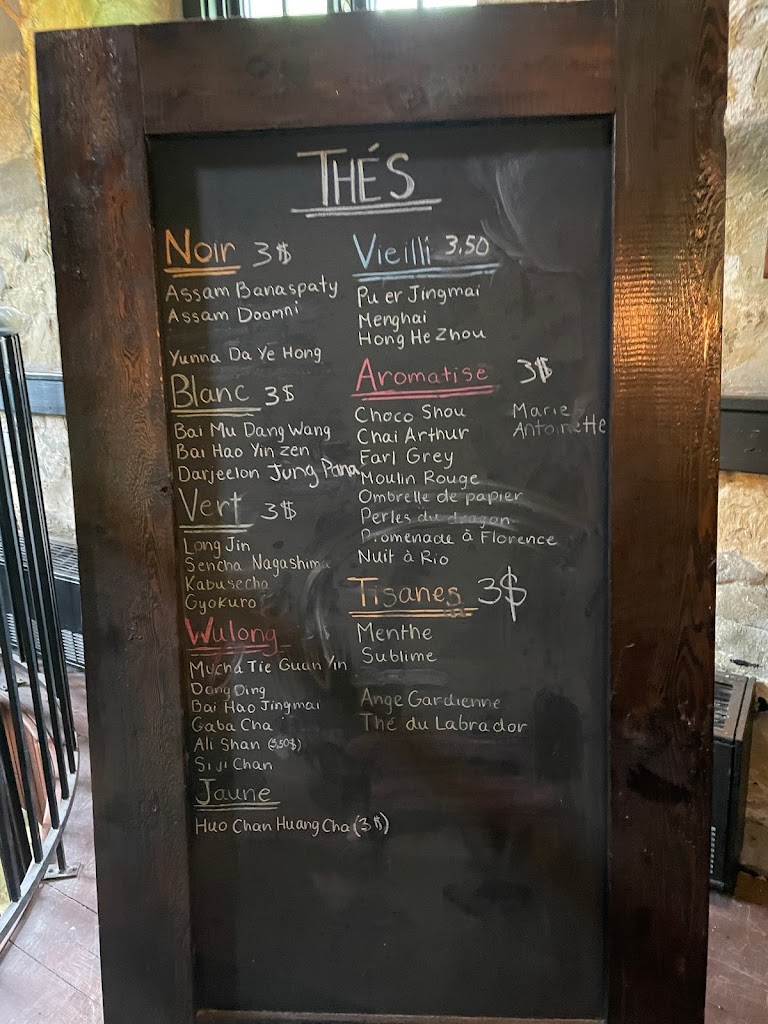 THÉS
Noir 3$
Assam Banaspaty
Assam Doomni
Yunna Da Ye Hong
Blanc 3$
Bai Mu Dang Wang
Bai Hao Yin zen
Darjeelon Jung Pana
Vert 3$
Long Jin
Sencha Nagashima
Kabusecha
Gyokuro
Wulong
Mucha Tie Guan Yin
Dong Ding
Bai Hao Jingmai
Gaba Cha
Ali Shan (3,50$)
Si Ji Chan
Jaune
Huo Chan Huang Cha (3$)
Vieilli 3.50
Pu er Jingmai
Menghai
Hong He Zhou
Aromatise 3$
Choco Shou
Chai Arthur
Earl Grey
Moulin Rouge
Ombrelle de papier
Perles du dragon
Promenade à Florence
Nuit à Rio
Marie
Antoinette
Tisanes 3$
Menthe
Sublime
Ange Gardienne
Thé du Labrador